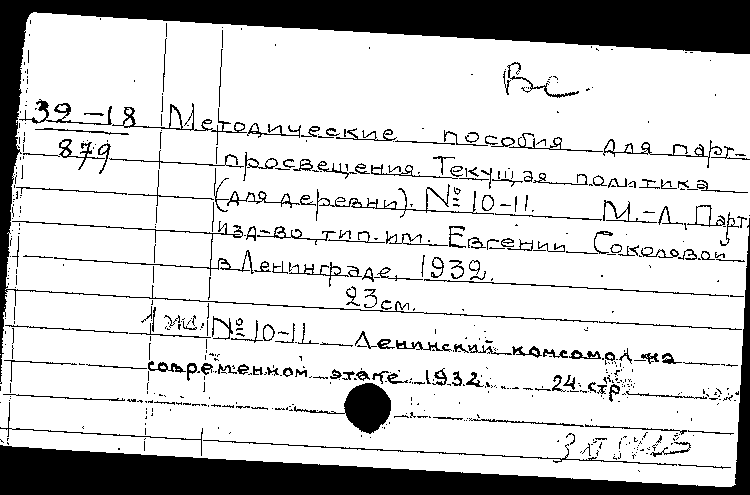 Вс.
32-18 Методические пособия для парт-
879 просвещения. Текущая политика
(для деревни). № 10-11. М.-Л., Парт.
изд-во, тип. им. Евгении Соколовой
в Ленинграде, 1932.
23см.
1 экз. № 10-11. Ленинский комсомол на
современном этапе. 1932. 24 стр.